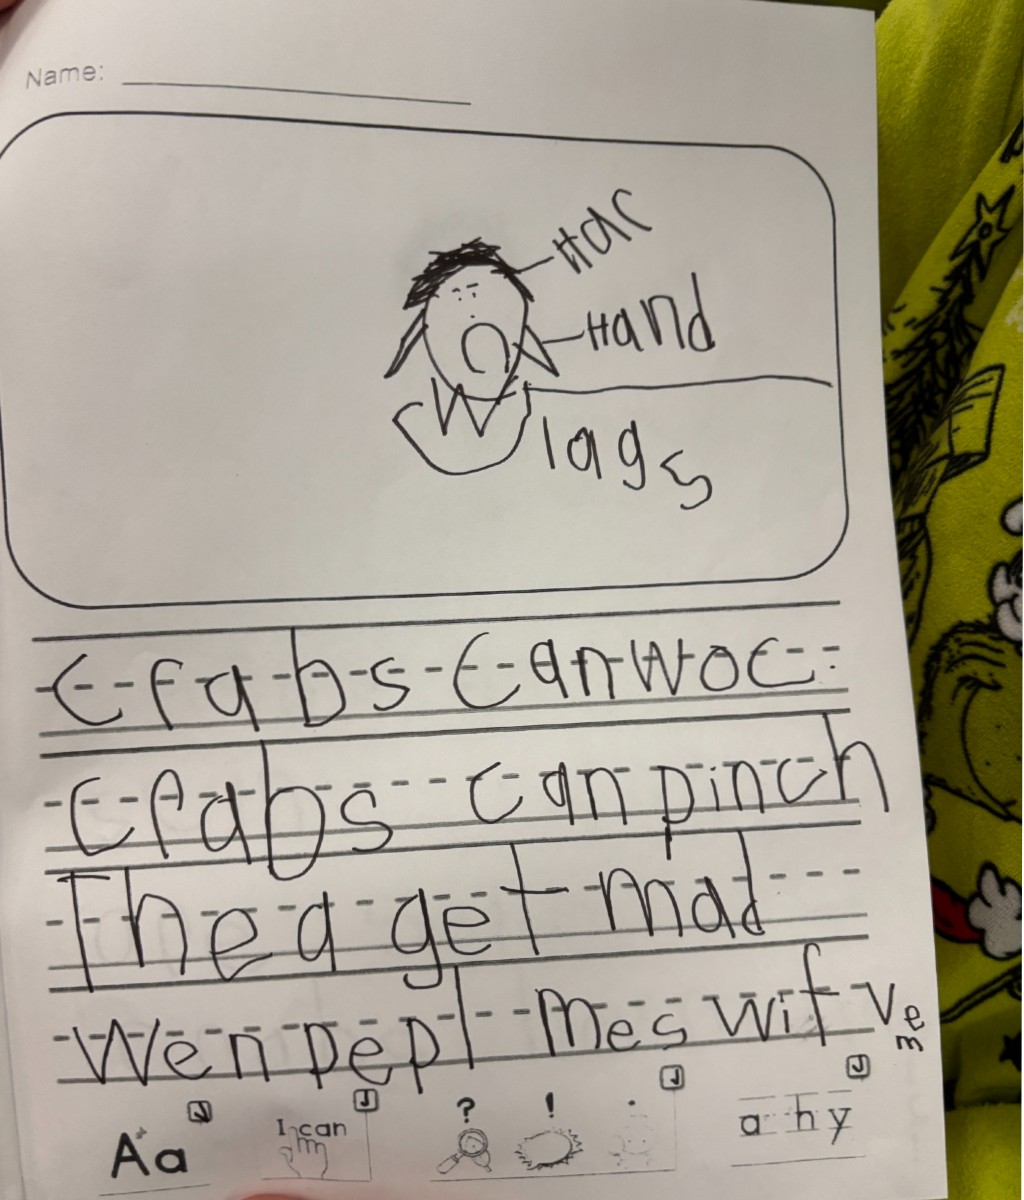 Name:
Har
Hand
lags
Crabs Can woc.
Crabs can pinch
Thea get mad
Wen pepl mes wif vem
? ! .
Aa
I can
a h y